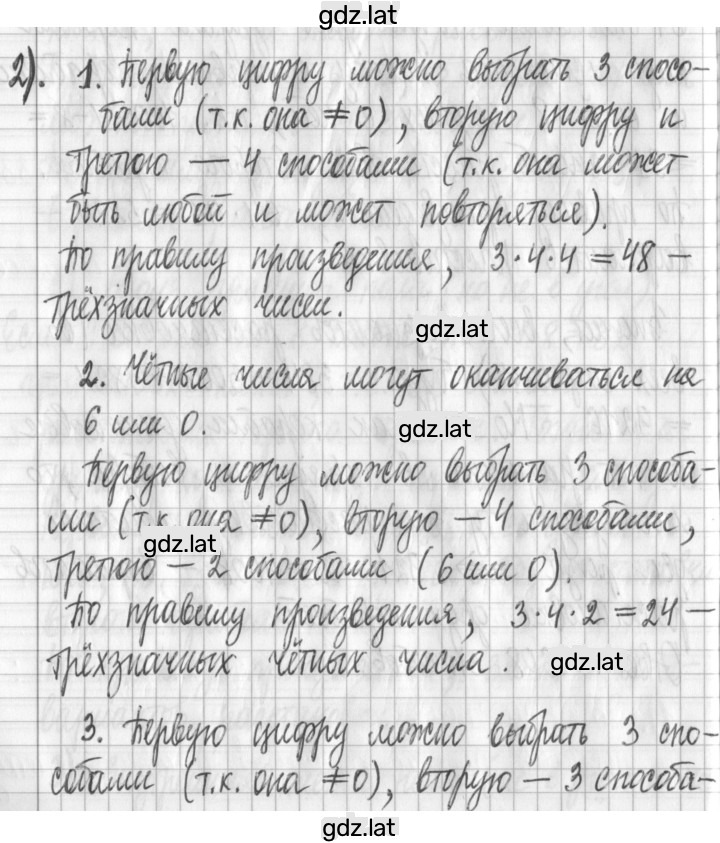 gdz.lat
2). 1. Первую цифру можно выбрать 3 спосо-
бами (т.к. она ≠0), вторую цифру и
третью — 4 способами (т.к. она может
быть любой и может повторяться).
По правилу произведения, 3·4·4=48 —
трёхзначных чисел.
gdz.lat
2. Чётные числа могут оканчиваться на
6 или 0.
gdz.lat
Первую цифру можно выбрать 3 способа-
ми (т.к. она ≠0), вторую — 4 способами,
gdz.lat
третью — 2 способами (6 или 0).
По правилу произведения, 3·4·2=24 —
трёхзначных чётных числа.
gdz.lat
3. Первую цифру можно выбрать 3 спо-
собами (т.к. она ≠0), вторую — 3 способа-
gdz.lat